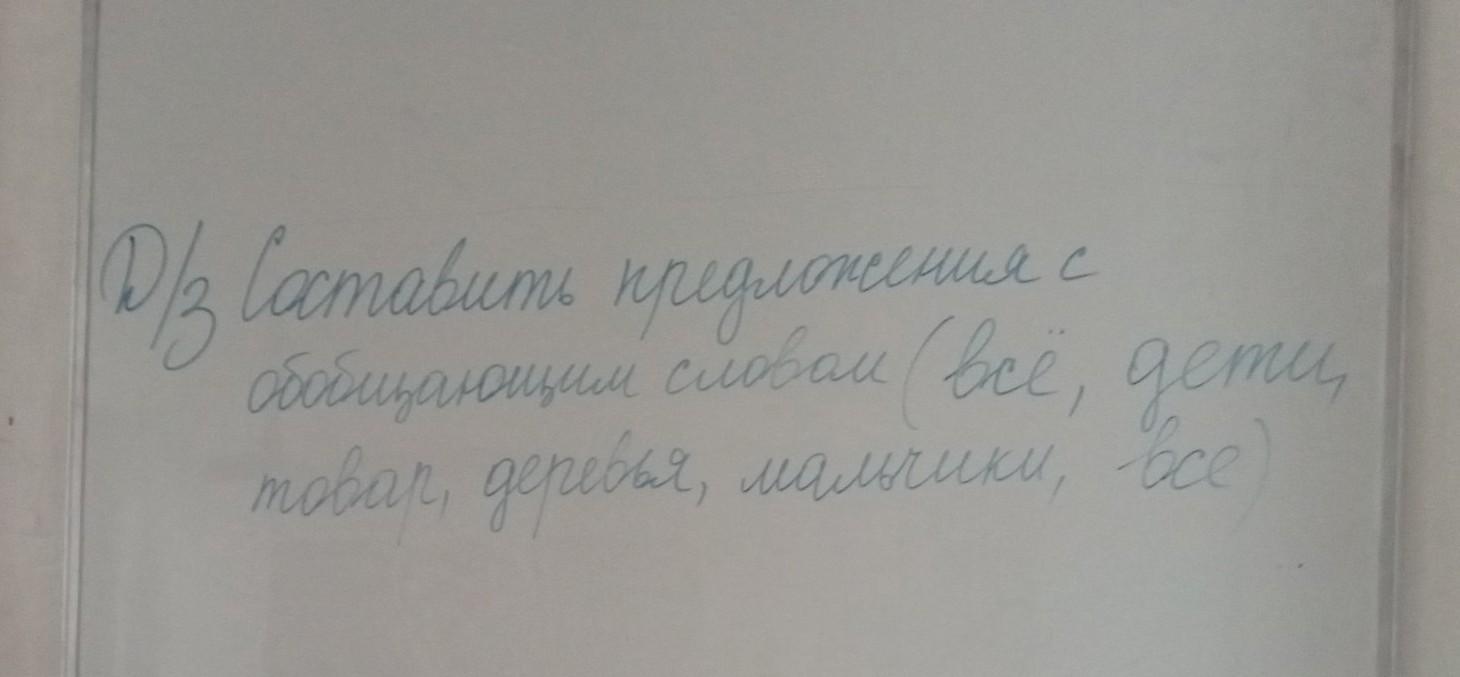 Д/з Составить предложения с
обобщающим словом (всё, дети,
товар, деревья, мальчики, все)